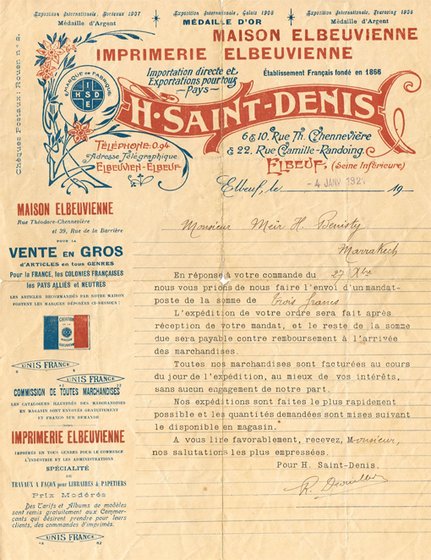 Exposition Internationale, Bordeaux 1907
Médaille d'Argent
Exposition Internationale, Calais 1908
MÉDAILLE D'OR
Exposition Internationale, Tourcoing 1906
Médaille d'Argent
MAISON ELBEUVIENNE
IMPRIMERIE ELBEUVIENNE
Importation directe et
Exportations pour tous
Pays
Établissement Français fondé en 1866
MARQUE DE FABRIQUE
H. SAINT-DENIS
TÉLÉPHONE: 0.94
Adresse Télégraphique
ELBEUVIEN-ELBEUF
6 & 10, Rue Th. Chennevière
& 22, Rue Camille-Randoing.
ELBEUF, (Seine Inférieure)
Chèques Postaux: Rouen n°
Elbeuf, le
- 4 JANV 192
19
Monsieur Meir H.
Marrakech
MAISON ELBEUVIENNE
Rue Théodore-Chennevière
et 39, Rue de la Barrière
POUR LA
VENTE EN GROS
d'ARTICLES en tous GENRES
Pour la FRANCE, les COLONIES FRANÇAISES
les PAYS ALLIÉS et NEUTRES
LES ARTICLES RECOMMANDÉS PAR NOTRE MAISON
PORTENT LES MARQUES DÉPOSÉES CI-DESSOUS:
UNIS FRANCE
UNIS FRANCE
COMMISSION DE TOUTES MARCHANDISES
LES CATALOGUES ILLUSTRÉS DES MARCHANDISES
EN MAGASIN SONT ENVOYÉS GRATUITEMENT
ET FRANCO SUR DEMANDE
UNIS FRANCE
IMPRIMERIE ELBEUVIENNE
IMPRIMÉS EN TOUS GENRES POUR LE COMMERCE
L'INDUSTRIE ET LES ADMINISTRATIONS
SPÉCIALITÉ
DE
TRAVAUX A FAÇON pour LIBRAIRES & PAPETIERS
Prix Modérés
Des Tarifs et Albums de modèles
sont remis gratuitement aux Commer-
çants qui désirent prendre pour leurs
clients, des commandes d'imprimés.
En réponse à votre commande du 27 Xbre
nous vous prions de nous faire l'envoi d'un mandat-
poste de la somme de trois francs
L'expédition de votre ordre sera fait après
réception de votre mandat, et le reste de la somme
due sera payable contre remboursement à l'arrivée
des marchandises.
Toutes nos marchandises sont facturées au cours
du jour de l'expédition, au mieux de vos intérêts,
sans aucun engagement de notre part.
Nos expéditions sont faites le plus rapidement
possible et les quantités demandées sont mises suivant
le disponible en magasin.
A vous lire favorablement, recevez, Monsieur,
nos salutations les plus empressées.
Pour H. Saint-Denis.